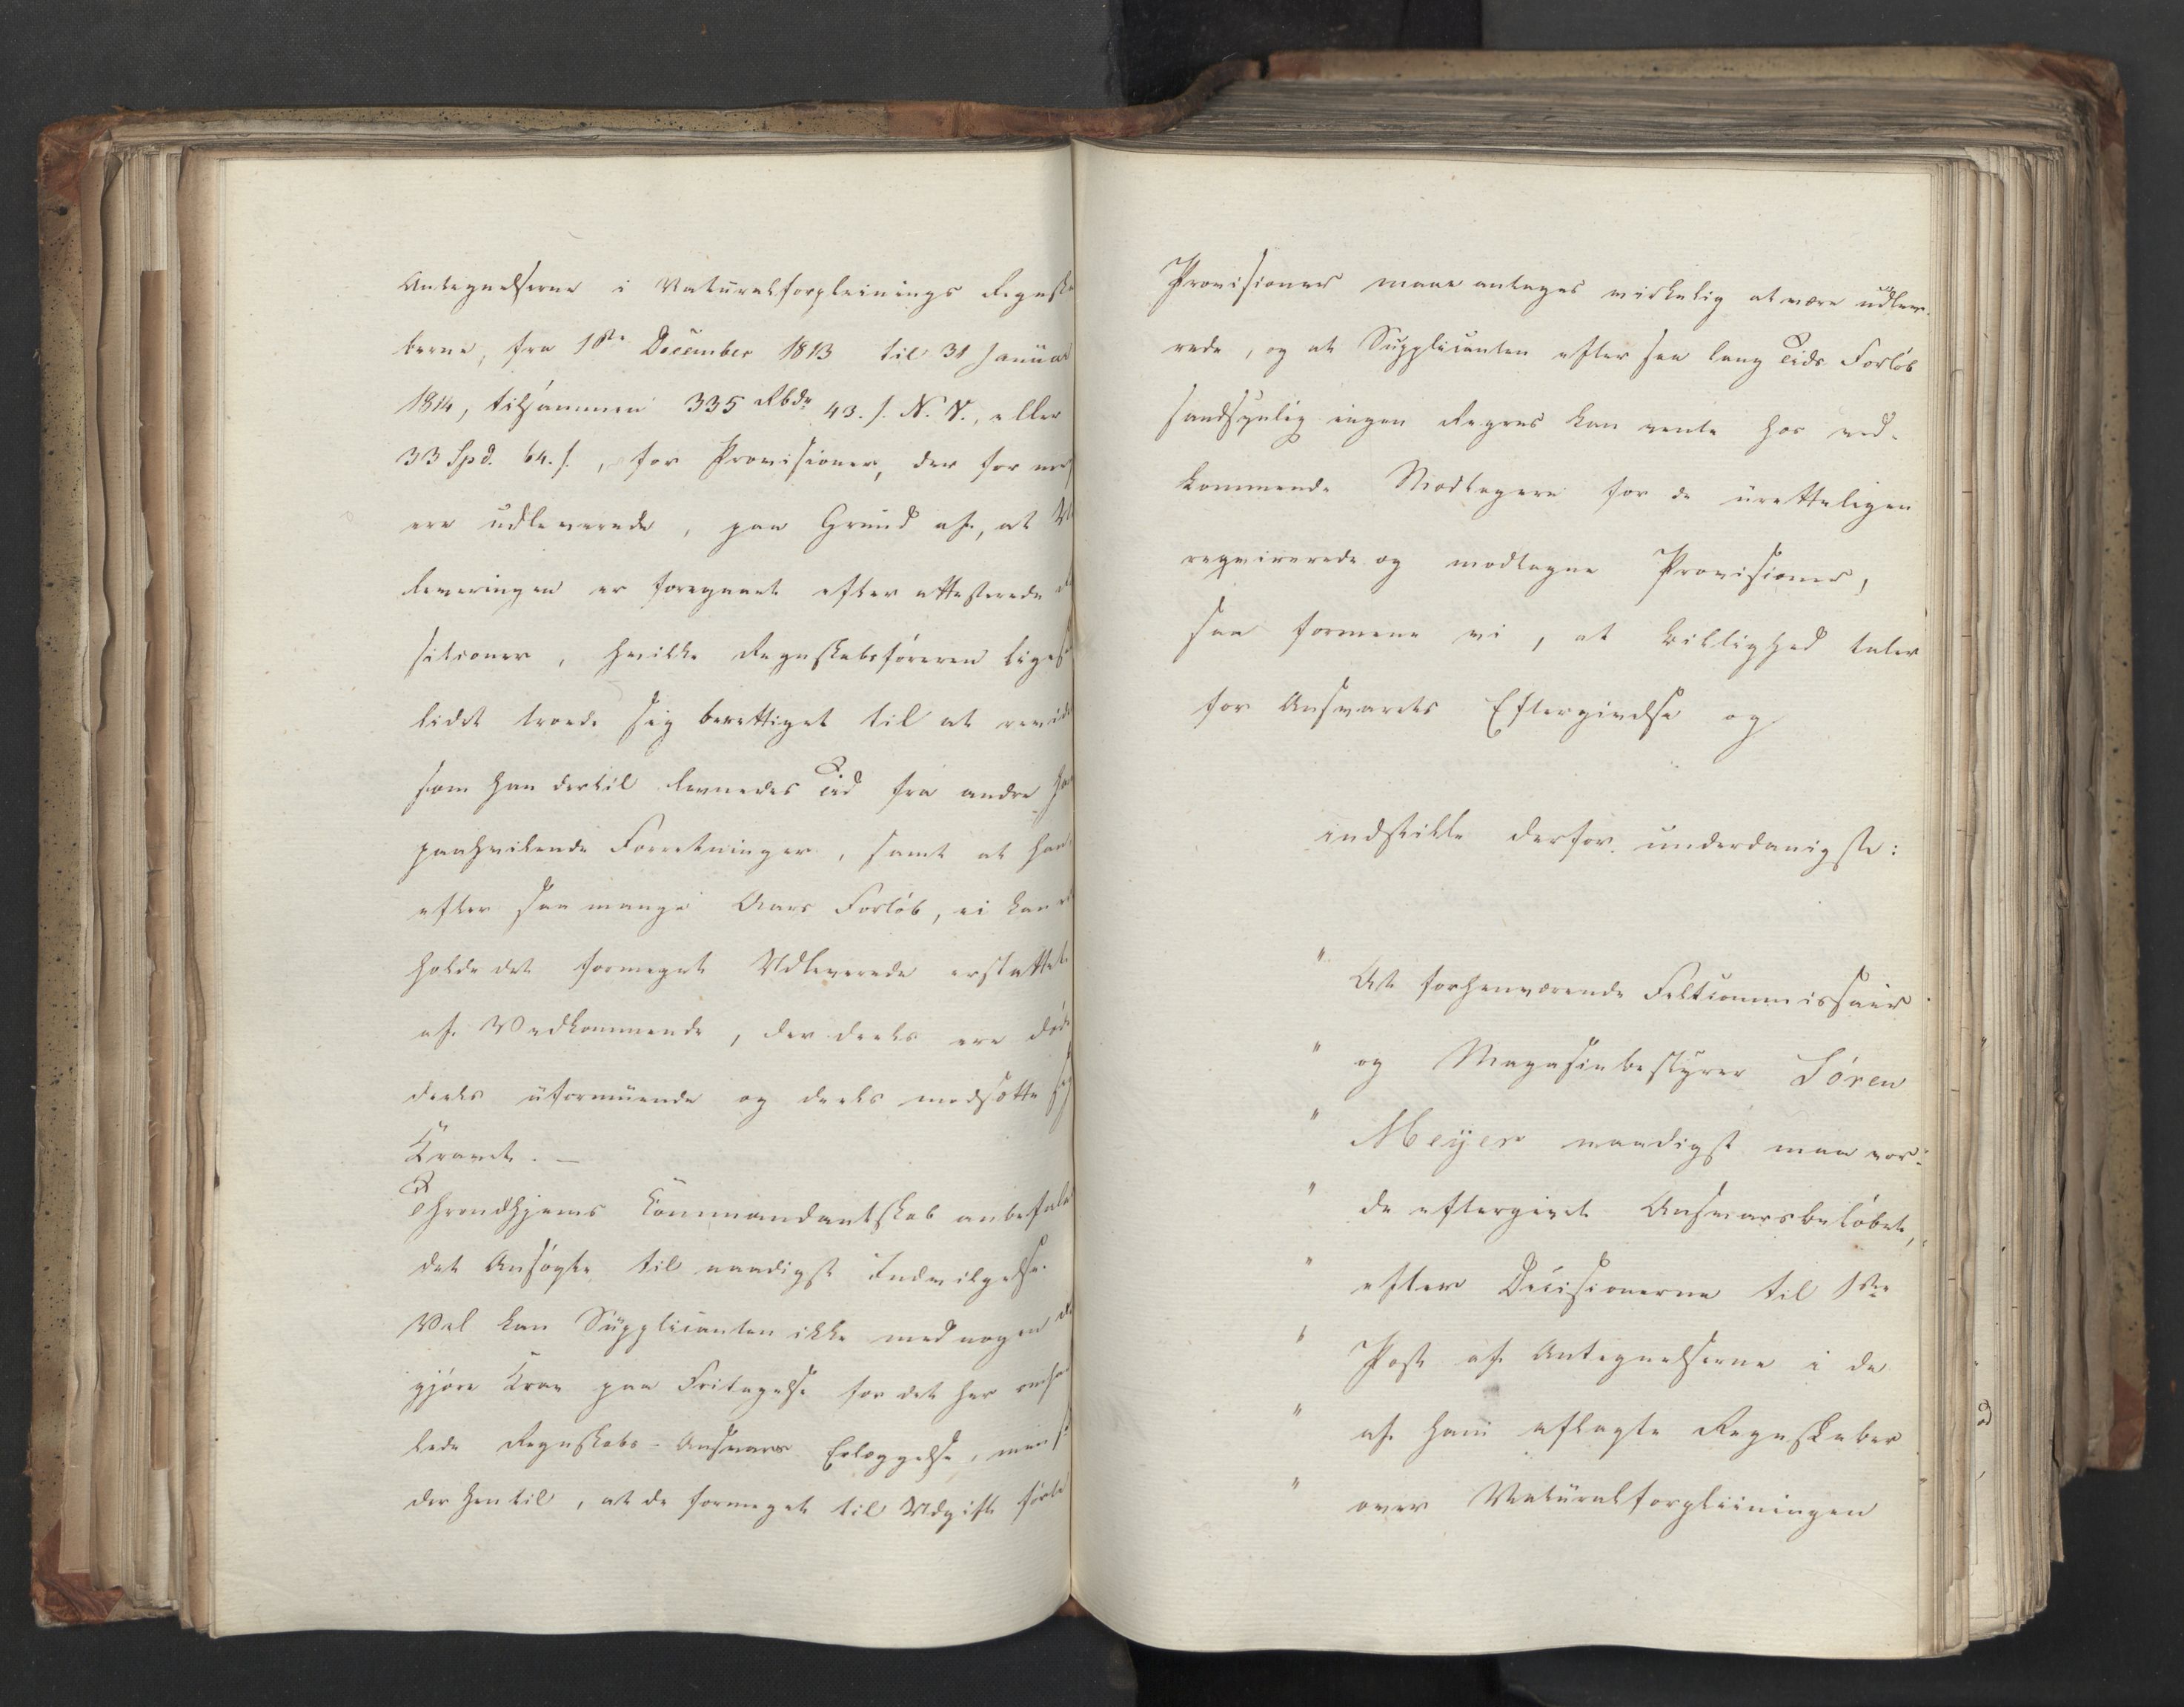 Antegnelserne i Naturalforpleinings Regnska
berne, fra 1ste December 1813 til 31 Januar
1814, tilsammen 335 Rbdr 43. s. N. V., eller
33 Spd. 64. s., for Provisioner, der for
ere udleverede, paa Grund af, at
leveringen er foregaaet efter attesterede
sitioner, hvilke Regnskabsføreren liges
lidet troede sig berettiget til at
som han dertil levnedes Tid fra andre
paahvilende Forretninger, samt at han
efter saa mange Aars Forløb, ei kan
holde det formeget Udleverede erstattet
af Vedkommende, der deels ere døde
deels uformuende og deels modsætte sig
Kravet. —
Throndhjems Commandantskab anbefaler
det Ansøgte til naadigst Indvilgelse.
Vel kan Supplicanten ikke med nogen
gjøre Krav paa Fritagelse for det her
lede Regnskabs-Ansvars Erlæggelse, men
der hentil, at de formeget til Udgift førte
Provisioner maae antages virkelig at være udleve-
rede, og at Supplicanten efter saa lang Tids Forløb
sandsynlig ingen Regres kan vente hos ved-
kommende Modtagere for de uretteligen
reqvirerede og modtagne Provisioner,
saa formene vi, at Billighed taler
for Ansvarets Eftergivelse og
indstille derfor underdanigst:
" At forhenværende Feltcommissair
" og Magasinbestyrer Søren
" Meyer naadigst maa vor-
" de eftergivet Ansvarsbeløbet,
" efter Decisionerne til 1ste
" Post af Antegnelserne i de
" af ham aflagte Regnskaber
" over Naturalforpleiningen